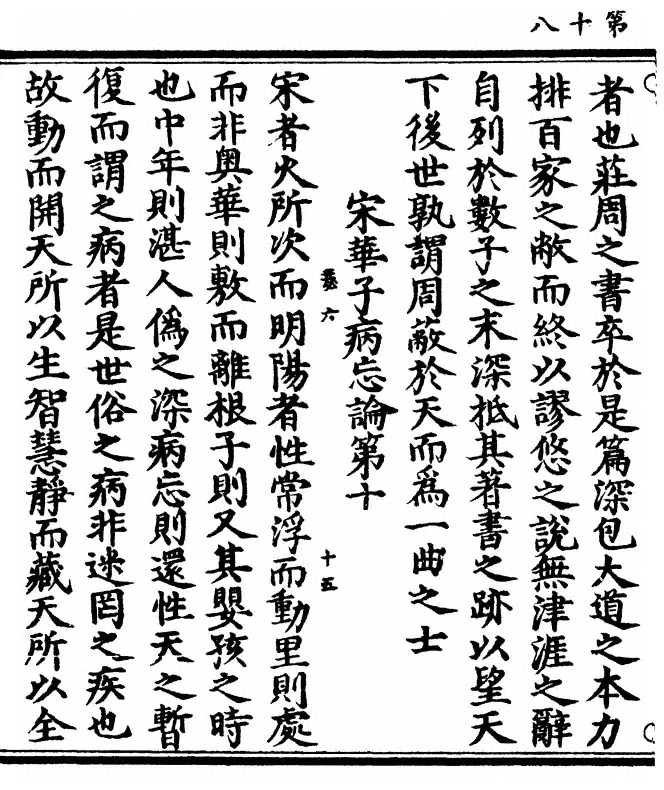 第十八
者也莊周之書卒於是篇深包大道之本力
排百家之敝而終以謬悠之說無津涯之辭
自列於數子之末深抵其著書之跡以望天
下後世孰謂周蔽於天而為一曲之士
宋華子病忘論第十
卷六
十五
宋者火所次而明陽者性常浮而動里則處
而非奧華則敷而離根子則又其嬰孩之時
也中年則湛人偽之深病忘則還性天之暫
復而謂之病者是世俗之病非迷罔之疾也
故動而開天所以生智慧靜而藏天所以全